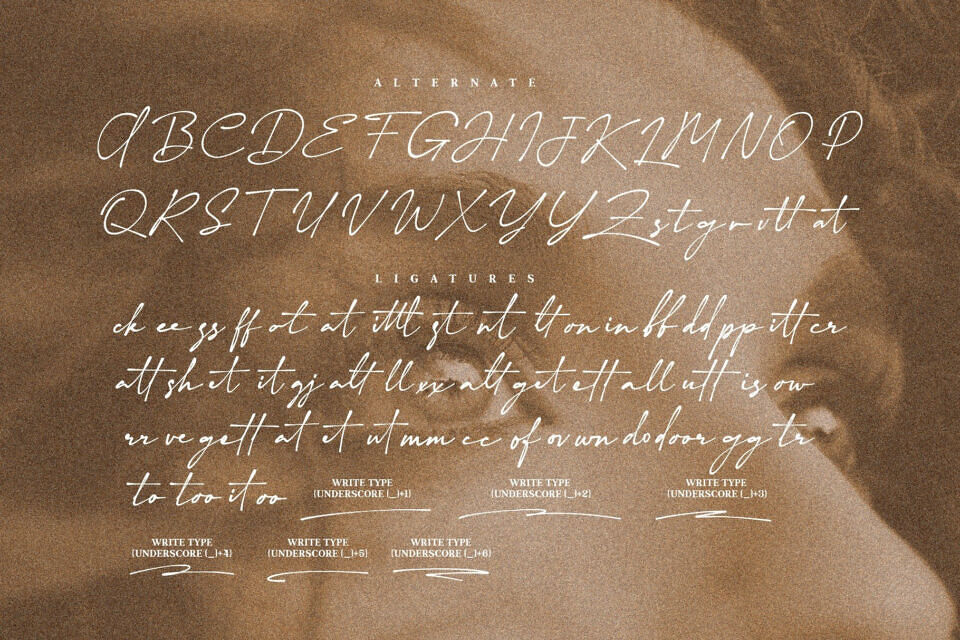 ALTERNATE
A B C D E F G H I J K L M N O P
Q R S T U V W X Y Y Z s t g r v tt at
LIGATURES
ck ee ss ff ot at itt tt st nt lt on in bb dd pp itt er
att sh et it gj att ll xx alt get ett all utt is ow
rr ve gett at et ut mm cc of ov wn do door gg tr
to too it oo
WRITE TYPE (UNDERSCORE (_)+1)
WRITE TYPE (UNDERSCORE (_)+2)
WRITE TYPE (UNDERSCORE (_)+3)
WRITE TYPE (UNDERSCORE (_)+4)
WRITE TYPE (UNDERSCORE (_)+5)
WRITE TYPE (UNDERSCORE (_)+6)